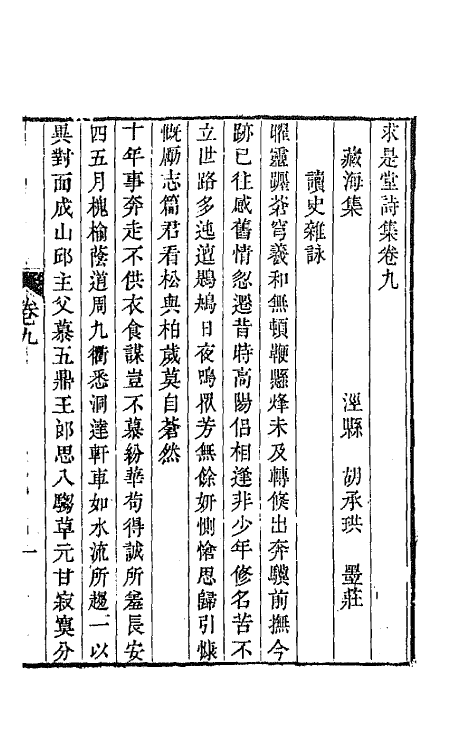 求是堂詩集卷九
藏海集　涇縣　胡承珙　墨莊
讀史雜詠
曜靈躔蒼穹羲和無頓鞭懸烽未及轉倏出奔驥前撫今
跡已往感舊情忽遷昔時高陽侶相逢非少年修名苦不
立世路多迍邅鶗鴂日夜鳴衆芳無餘妍惻愴思歸引慷
慨勵志篇君看松與柏歲莫自蒼然
十年事奔走不供衣食謀豈不慕紛華苟得誠所羞長安
四五月槐榆蔭道周九衢悉洞達軒車如水流所趨一以
異對面成山邱主父慕五鼎王郎思八騶草元甘寂寞分
卷九
一